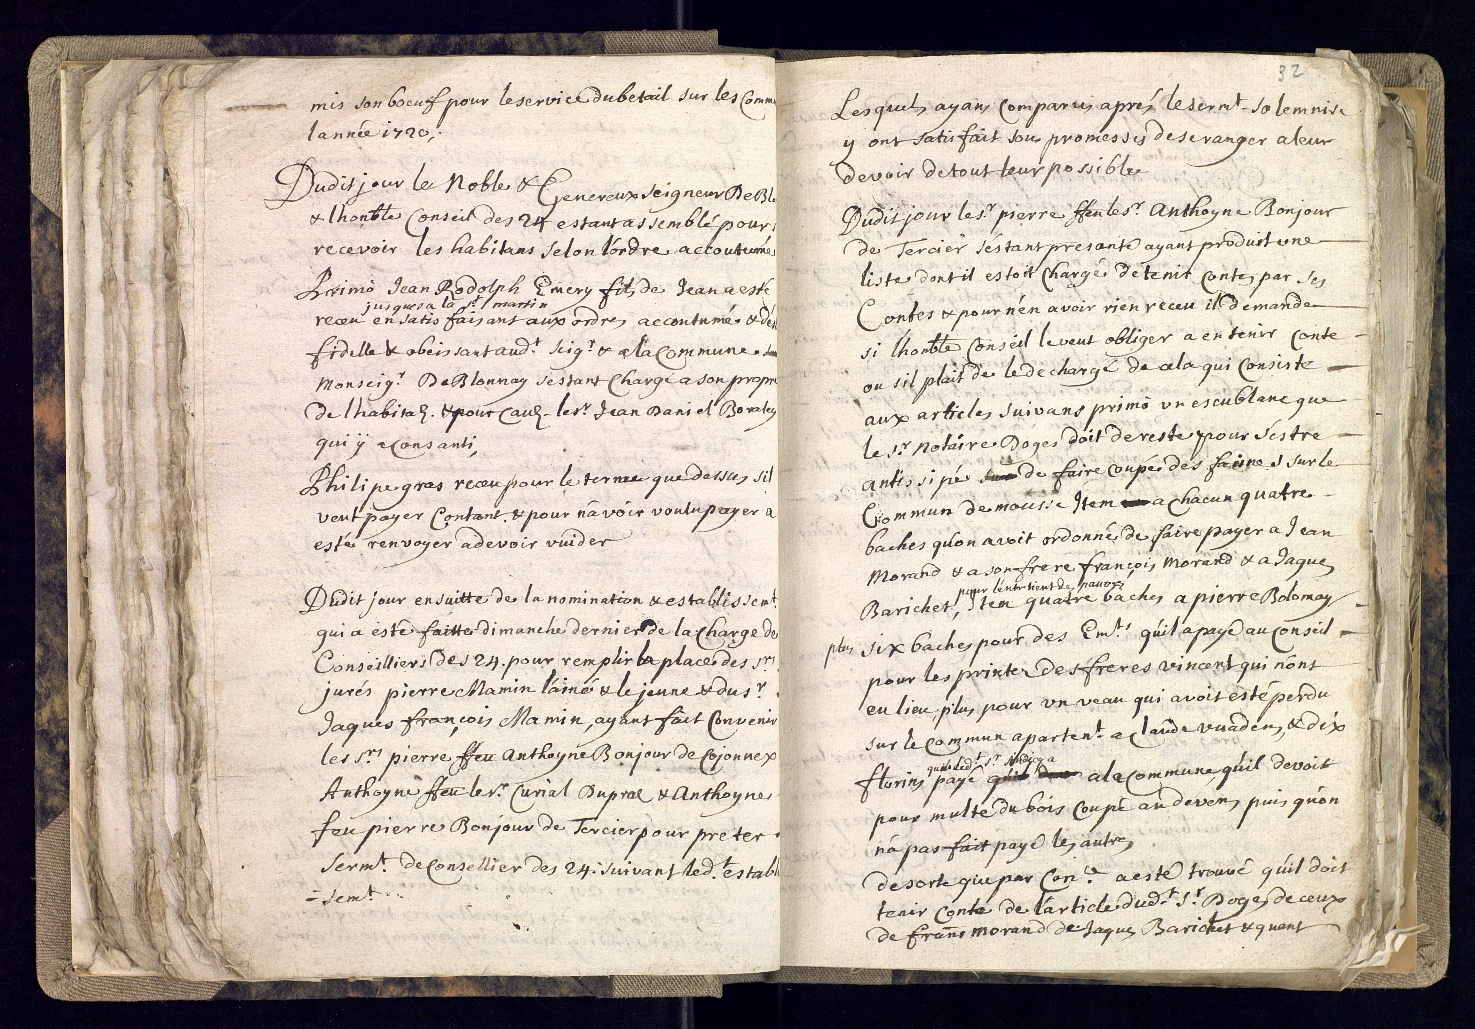 mis son boeuf pour le service du betail sur les Comm
lannée 1720,.
Dudit jour le Noble & Genereux seigneur De Bl
& lhonble Conseil des 24 estant assemblé pour
recevoir les habitans selon lordre accoutumé
Primo Jean Rodolph Emery fils de Jean a esté
jusques a la st martin
receu en satisfaisant aux ordres accoutumé & dés
fidelle & obeissant audt seigr & a la Commune
Monseigr De Blonnay sestant Chargé a son propre
de lhabitaõn & pour Cauõn le sr Jean Daniel Bovaley
qui ÿ a Consanti,
Philipe gras receu pour le terme que dessus sil
veut payer Contant. & pour na voir voulu payer a
esté renvoyer a devoir vuider
Dudit jour ensuitte de la nomination & establissemt
qui a esté faitte dimanche dernier de la Charge de
Conseilliers des 24. pour remplir la place des srs
jurés pierre Mamin láiné & le jeune & du sr
Jaques françois Mamin, ayant fait Convenir
les srs pierre ffeu Anthoyne Bonjour de Cojonnex
Anthoyne ffeu le sr Curial Dupraz & Anthoyne
feu pierre Bonjour de Tercier pour preter
sermt de Consellier des 24: suivant ledt establ
=semt.
32
Lesquels ayans Comparus aprés le sermt solemnise
y ont satisfait sous promesses de se ranger a leur
devoir de tout leur possible
Dudit jour le sr pierre ffeu le sr Anthoyne Bonjour
de Tercier séstant presanté ayant produit une
liste dont il estoit Chargé de tenir Contes par ses
Contes & pour nén avoir rien receu il demande
si lhonble Conseil le veut obliger a en tenir Conte
ou sil plait de le décharge de céla qui Consiste
aux articles suivans primo vn escublanc que
le sr Notaire Doges doit de reste pour séstre
antissipé de faire coupé des faisnes sur le
Commun de mousse Item a chacun quatre
baches quón avoit ordonné de faire payer a Jean
Morand & a son frere françois Morand & a Jaques
pour léntretient des pauvres
Barichet, Item quatre baches a pierre Bolomay
plus six baches pour des Emts quíl a payé au Conseil
pour les printes des freres vincent qui nónt
eu lieu, plus pour vn veau qui avoit esté perdu
sur le Commun apartent a Claude vuadens & dix
que led sr sindiq a
florins payé quil a la Commune, quíl devoit
pour multe du bois Coupé au devens, puis quón
ná pas fait payé les autres
de sorte que par Conce a esté trouvé quíl doit
tenir Conte de lárticle dudt sr Doges, de ceux
de frans morand de Jaques Barichet & quant